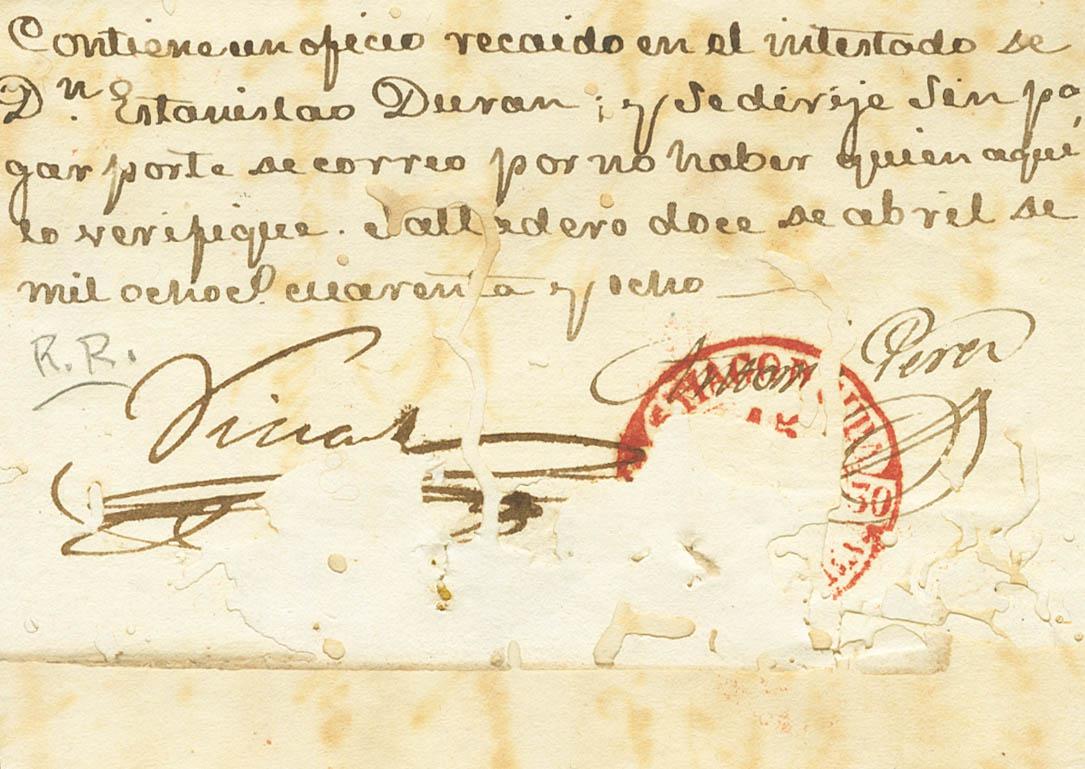 Contiene un oficio recaido en el intestado de
Dn. Estanislao Duran; y se dirije sin pa
gar porte de correo por no haber quien aquí
lo verifique. Salladero doce de abril de
mil ochocs. cuarenta y ocho
R.R.
Antonio Perez
15
30